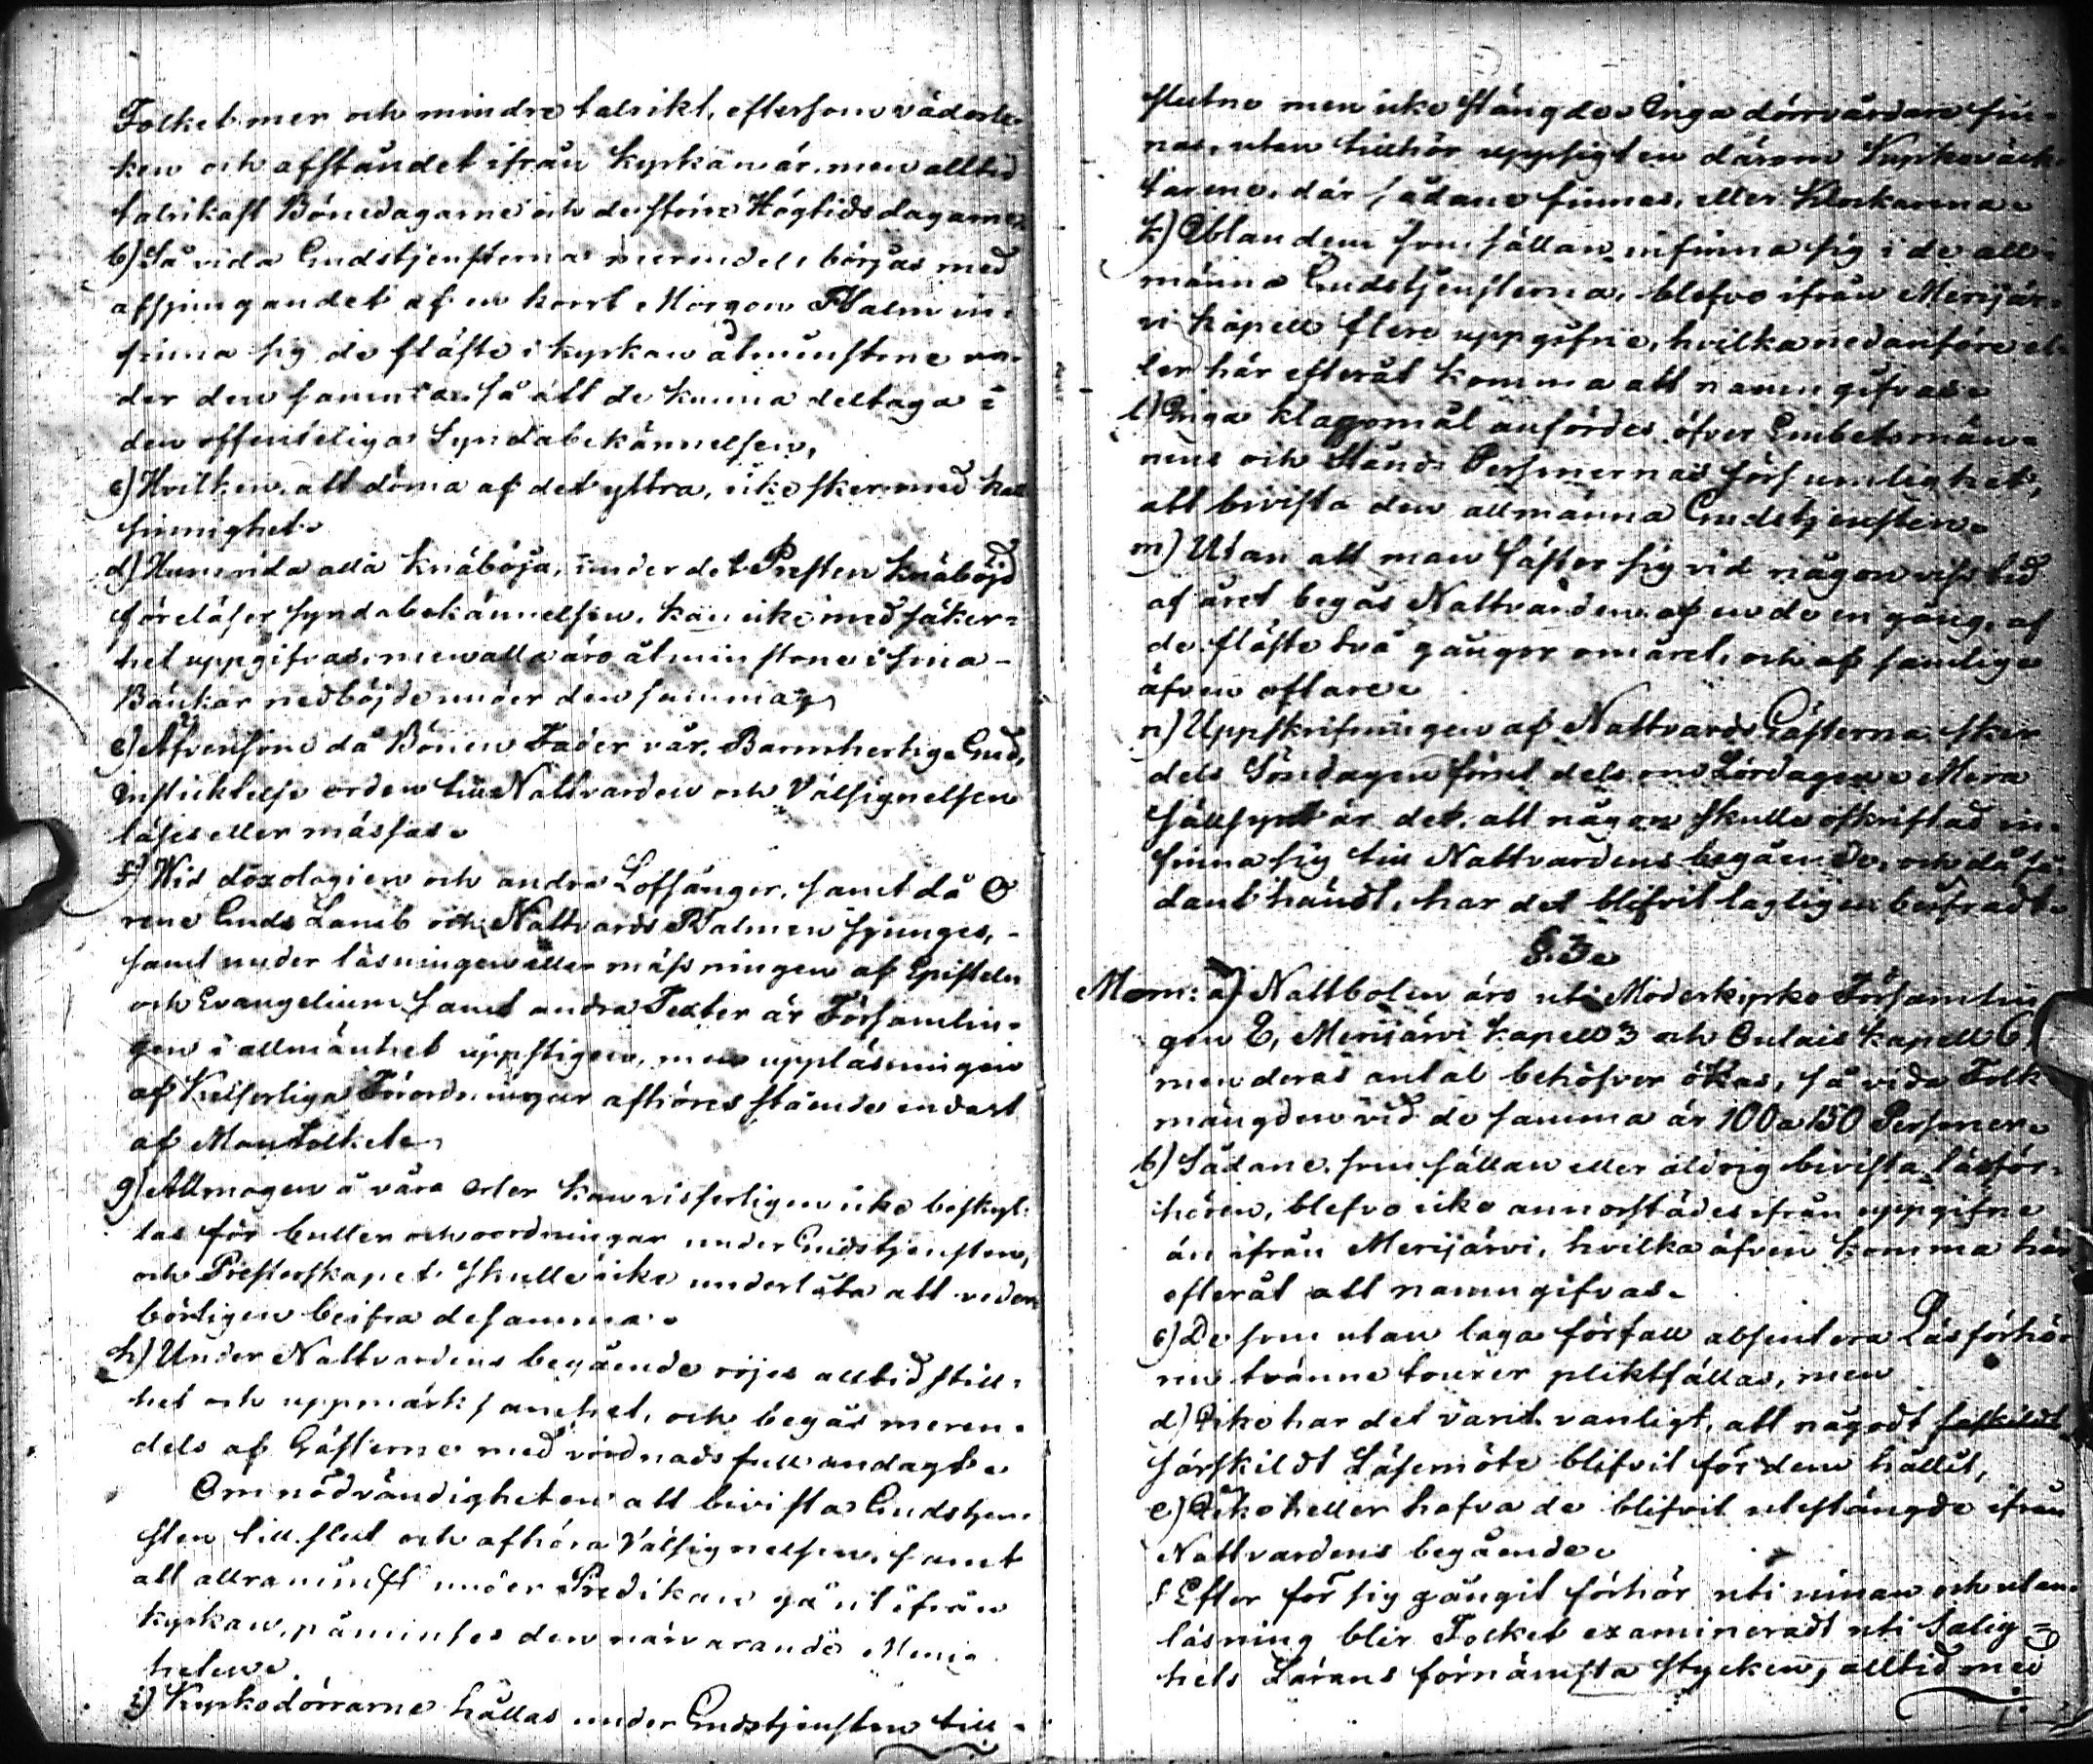 Folket mer och mindre talrikt, eftersom väderle-
ken och afståndet ifrån kyrkan är, men alltid
talrikast Bönedagarne och de större Högtidsdagarne.
b) Så vida Gudstjensterna merendels börjas med
afsjungandet af en kort Morgon Psalm in-
finna sig de fläste i kyrkan åtminstone un-
der den samma, så att de kunna deltaga i
den offenteliga Syndabekännelsen,
c) Hvilken, att döma af det yttra, icke sker med kall
sinnighet.
d) Huruvida alla knäböja, under det Presten knäböjd
föreläser syndabekännelsen, kan icke med säker-
het uppgifvas, men alla äro åtminstone i sina
Bänkar nedböjde under den samma,
e) Äfvensom då Bönen Fader vår, Barmhertige Gud,
Insticktelse orden till Nattvarden och Välsignelsen
läses eller mässas.
f) Wid doxologien och andra Lofsånger, samt då O
rene Guds Lamb och Nattvards Psalmen sjunges,
samt under läsningen eller mässningen af Episteln
och Evangelium samt andra Texter är Församlin-
gen i allmänhet uppstigen, men uppläsningen
af Kejserliga Förordningar afhöres stående endast
af Manfolket.
g) Allmogen å våra orter kan visserligen icke beskyl-
las för buller och oordningar under Gudstjensten,
och Presterskapet skulle icke underlåta att veder
börligen beifra desamma.
h) Under Nattvardens begående röjes alltid still-
het och uppmärksamhet, och begås meren-
dels af Gästerne med vördnadsfull andagt.
Om nödvändigheten att bivista Gudstjen-
sten till slut och afhöra Välsignelsen, samt
att allraminst under Predikan gå ut ifrån
kyrkan, påminnes den närvarande Meni-
heten.
i) Kyrkodörrarne hållas under Gudstjensten till-
slutne men icke stängde. Inga dörrvårdare fin-
nas, utan tillhör uppsigten därom Kyrkoväck-
tarene, där sådane finnas, eller Klockarena.
k) Ibland dem som sällan infinna sig i de all-
männa Gudstjensterna, blefvo ifrån Merijär-
vi kapell flere uppgifne, hvilka nedanföre el-
ler här efteråt komma att namngifvas.
l) Inga klagomål anfördes öfver Embetsmän-
nens och Stånds Personernas försumlighet,
att bivista den allmänna Gudstjensten.
m) Utan att man fäster sig vid någon viss tid
af året begås Nattvarden af en del en gång, af
de fläste två gånger om året, och af somlige
äfven oftare.
n) Uppskrifningen af Nattvards Gästerna sker
dels Söndagen förut dels om Lördagen. Mera
sällsynt är det, att någon skulle oskriftad in-
finna sig till Nattvardens begående, och då så-
dant händt, har det blifvit lagligen beifradt.
§ 3.
Mom: a) Nattbolen äro uti Moderkyrko Församlin
gen 8, Merijärvi kapell 3 och Oulais kapell 6,
men deras antal behöfver ökas, så vida Folk
mängden vid de samma är 100 a 150 Personer.
b) Sådane, som sällan eller aldrig bivista läsför-
hören, blefvo icke annorstädes ifrån uppgifne
än ifrån Merijärvi, hvilka äfven komma här
efteråt att namngifvas.
c) De som utan laga förfall absentera Läsförhö-
ren tvänne tourer pliktfällas, men
d) Icke har det varit vanligt, att någodt
särskildt Läsemöte blifvit för dem hållit,
e) Icke heller hafva de blifvit utestängde ifrån
Nattvardens begående.
f Efter för sig gångit förhör uti innan och utan-
läsning blir Folket examineradt uti Salig-
hets Lärans förnämsta stycken, alltid med